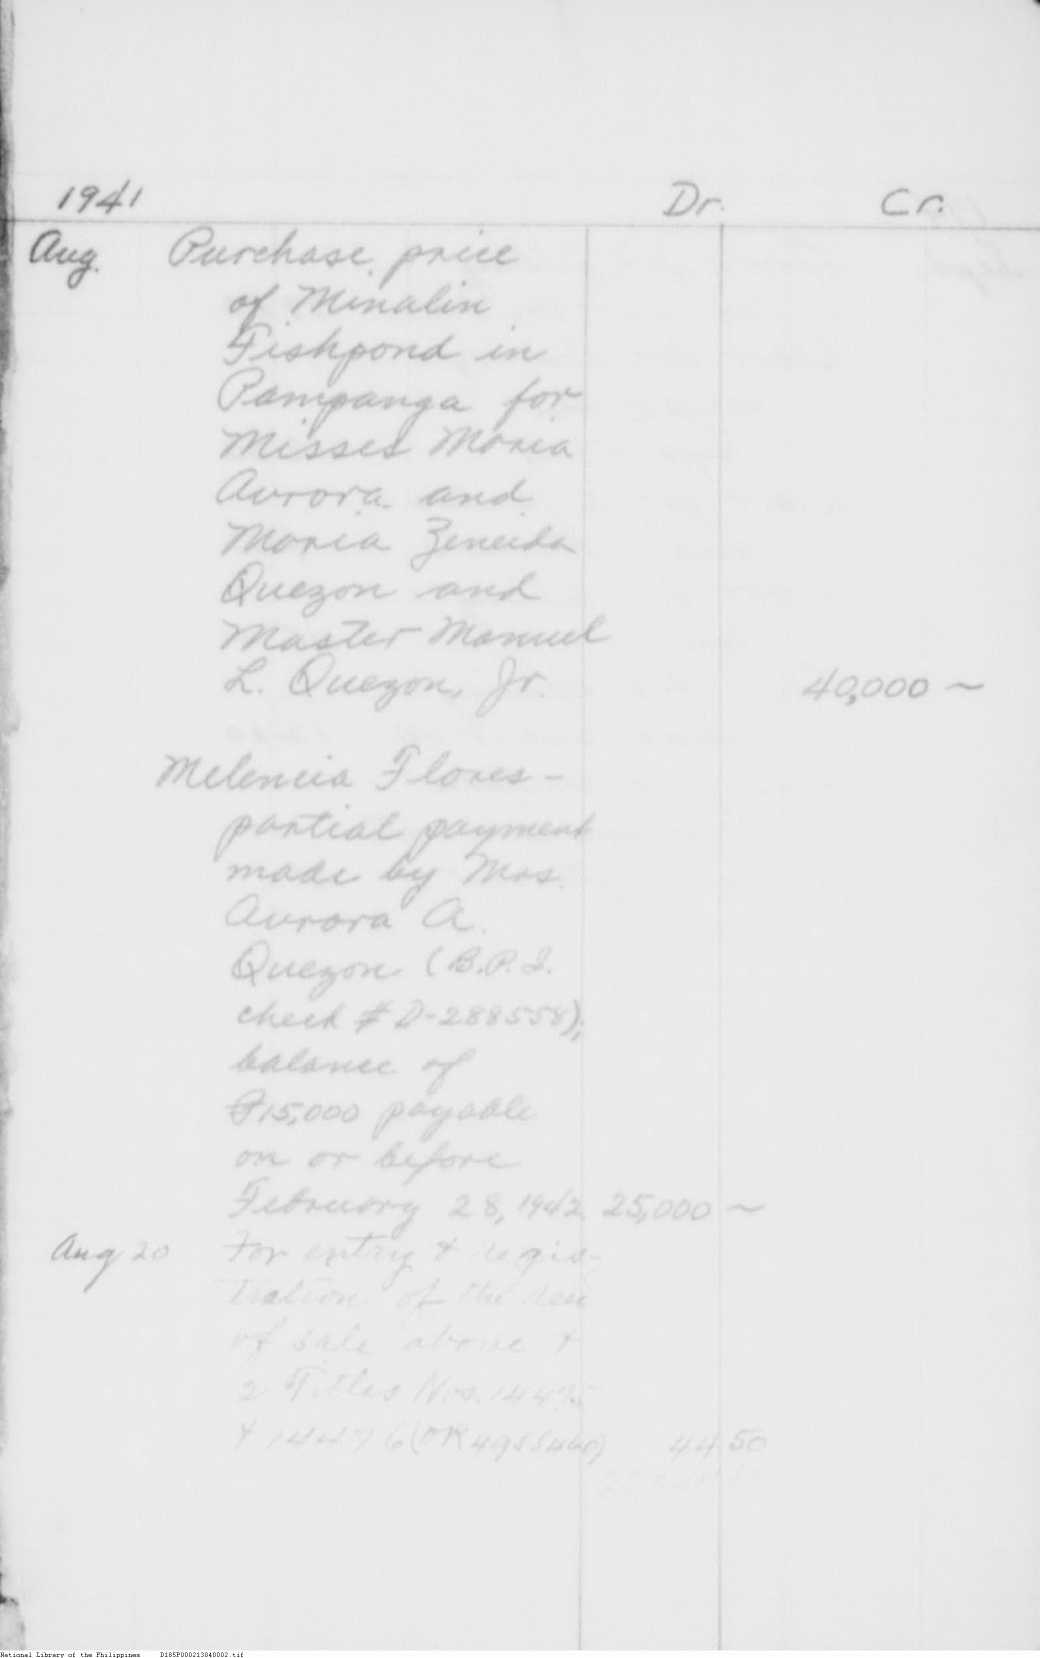 1941 Dr. Cr.
Aug. Purchase price
of Minalin
Fishpond in
Pampanga for
Misses Maria
Aurora and
Maria Zeneida
Quezon and
Master Manuel
L. Quezon, Jr. 40,000 ~
Melencia Flores -
partial payment
made by Mrs.
Aurora A.
Quezon (B.P.I.
check # D-288558);
balance of
₱15,000 payable
on or before
February 28, 1942 25,000 ~
Aug 20 For entry & regis-
tration of the
of sale above &
2 Titles Nos. 14475
& 14476 (OR 44 50
National Library of the Philippines D185P000213040002.tif